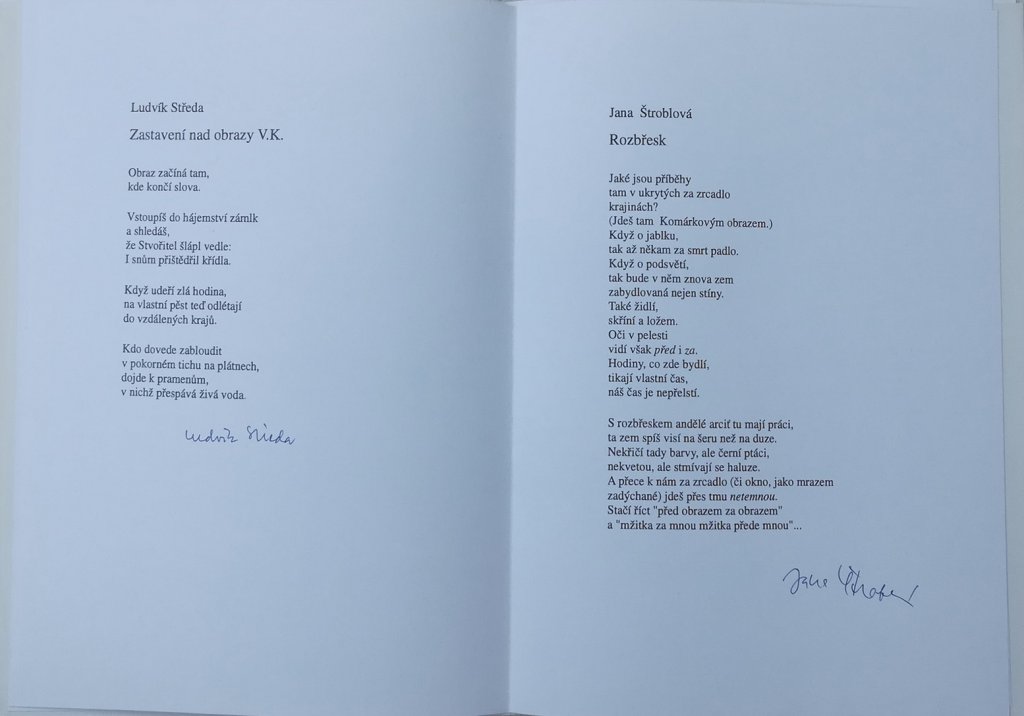 Ludvík Středa
Zastavení nad obrazy V.K.
Obraz začíná tam,
kde končí slova.
Vstoupíš do hájemství zámlk
a shledáš,
že Stvořitel šlápl vedle:
I snům přištědřil křídla.
Když udeří zlá hodina,
na vlastní pěst teď odlétají
do vzdálených krajů.
Kdo dovede zabloudit
v pokorném tichu na plátnech,
dojde k pramenům,
v nichž přespává živá voda.
Ludvík Středa
Jana Štroblová
Rozbřesk
Jaké jsou příběhy
tam v ukrytých za zrcadlo
krajinách?
(Jdeš tam Komárkovým obrazem.)
Když o jablku,
tak až někam za smrt padlo.
Když o podsvětí,
tak bude v něm znova zem
zabydlovaná nejen stíny.
Také židlí,
skříní a ložem.
Oči v pelesti
vidí však před i za.
Hodiny, co zde bydlí,
tikají vlastní čas,
náš čas je nepřelstí.
S rozbřeskem andělé arciť tu mají práci,
ta zem spíš visí na šeru než na duze.
Nekřičí tady barvy, ale černí ptáci,
nekvetou, ale stmívají se haluze.
A přece k nám za zrcadlo (či okno, jako mrazem
zadýchané) jdeš přes tmu netemnou.
Stačí říct "před obrazem za obrazem"
a "mžitka za mnou mžitka přede mnou"...
Jana Štroblová